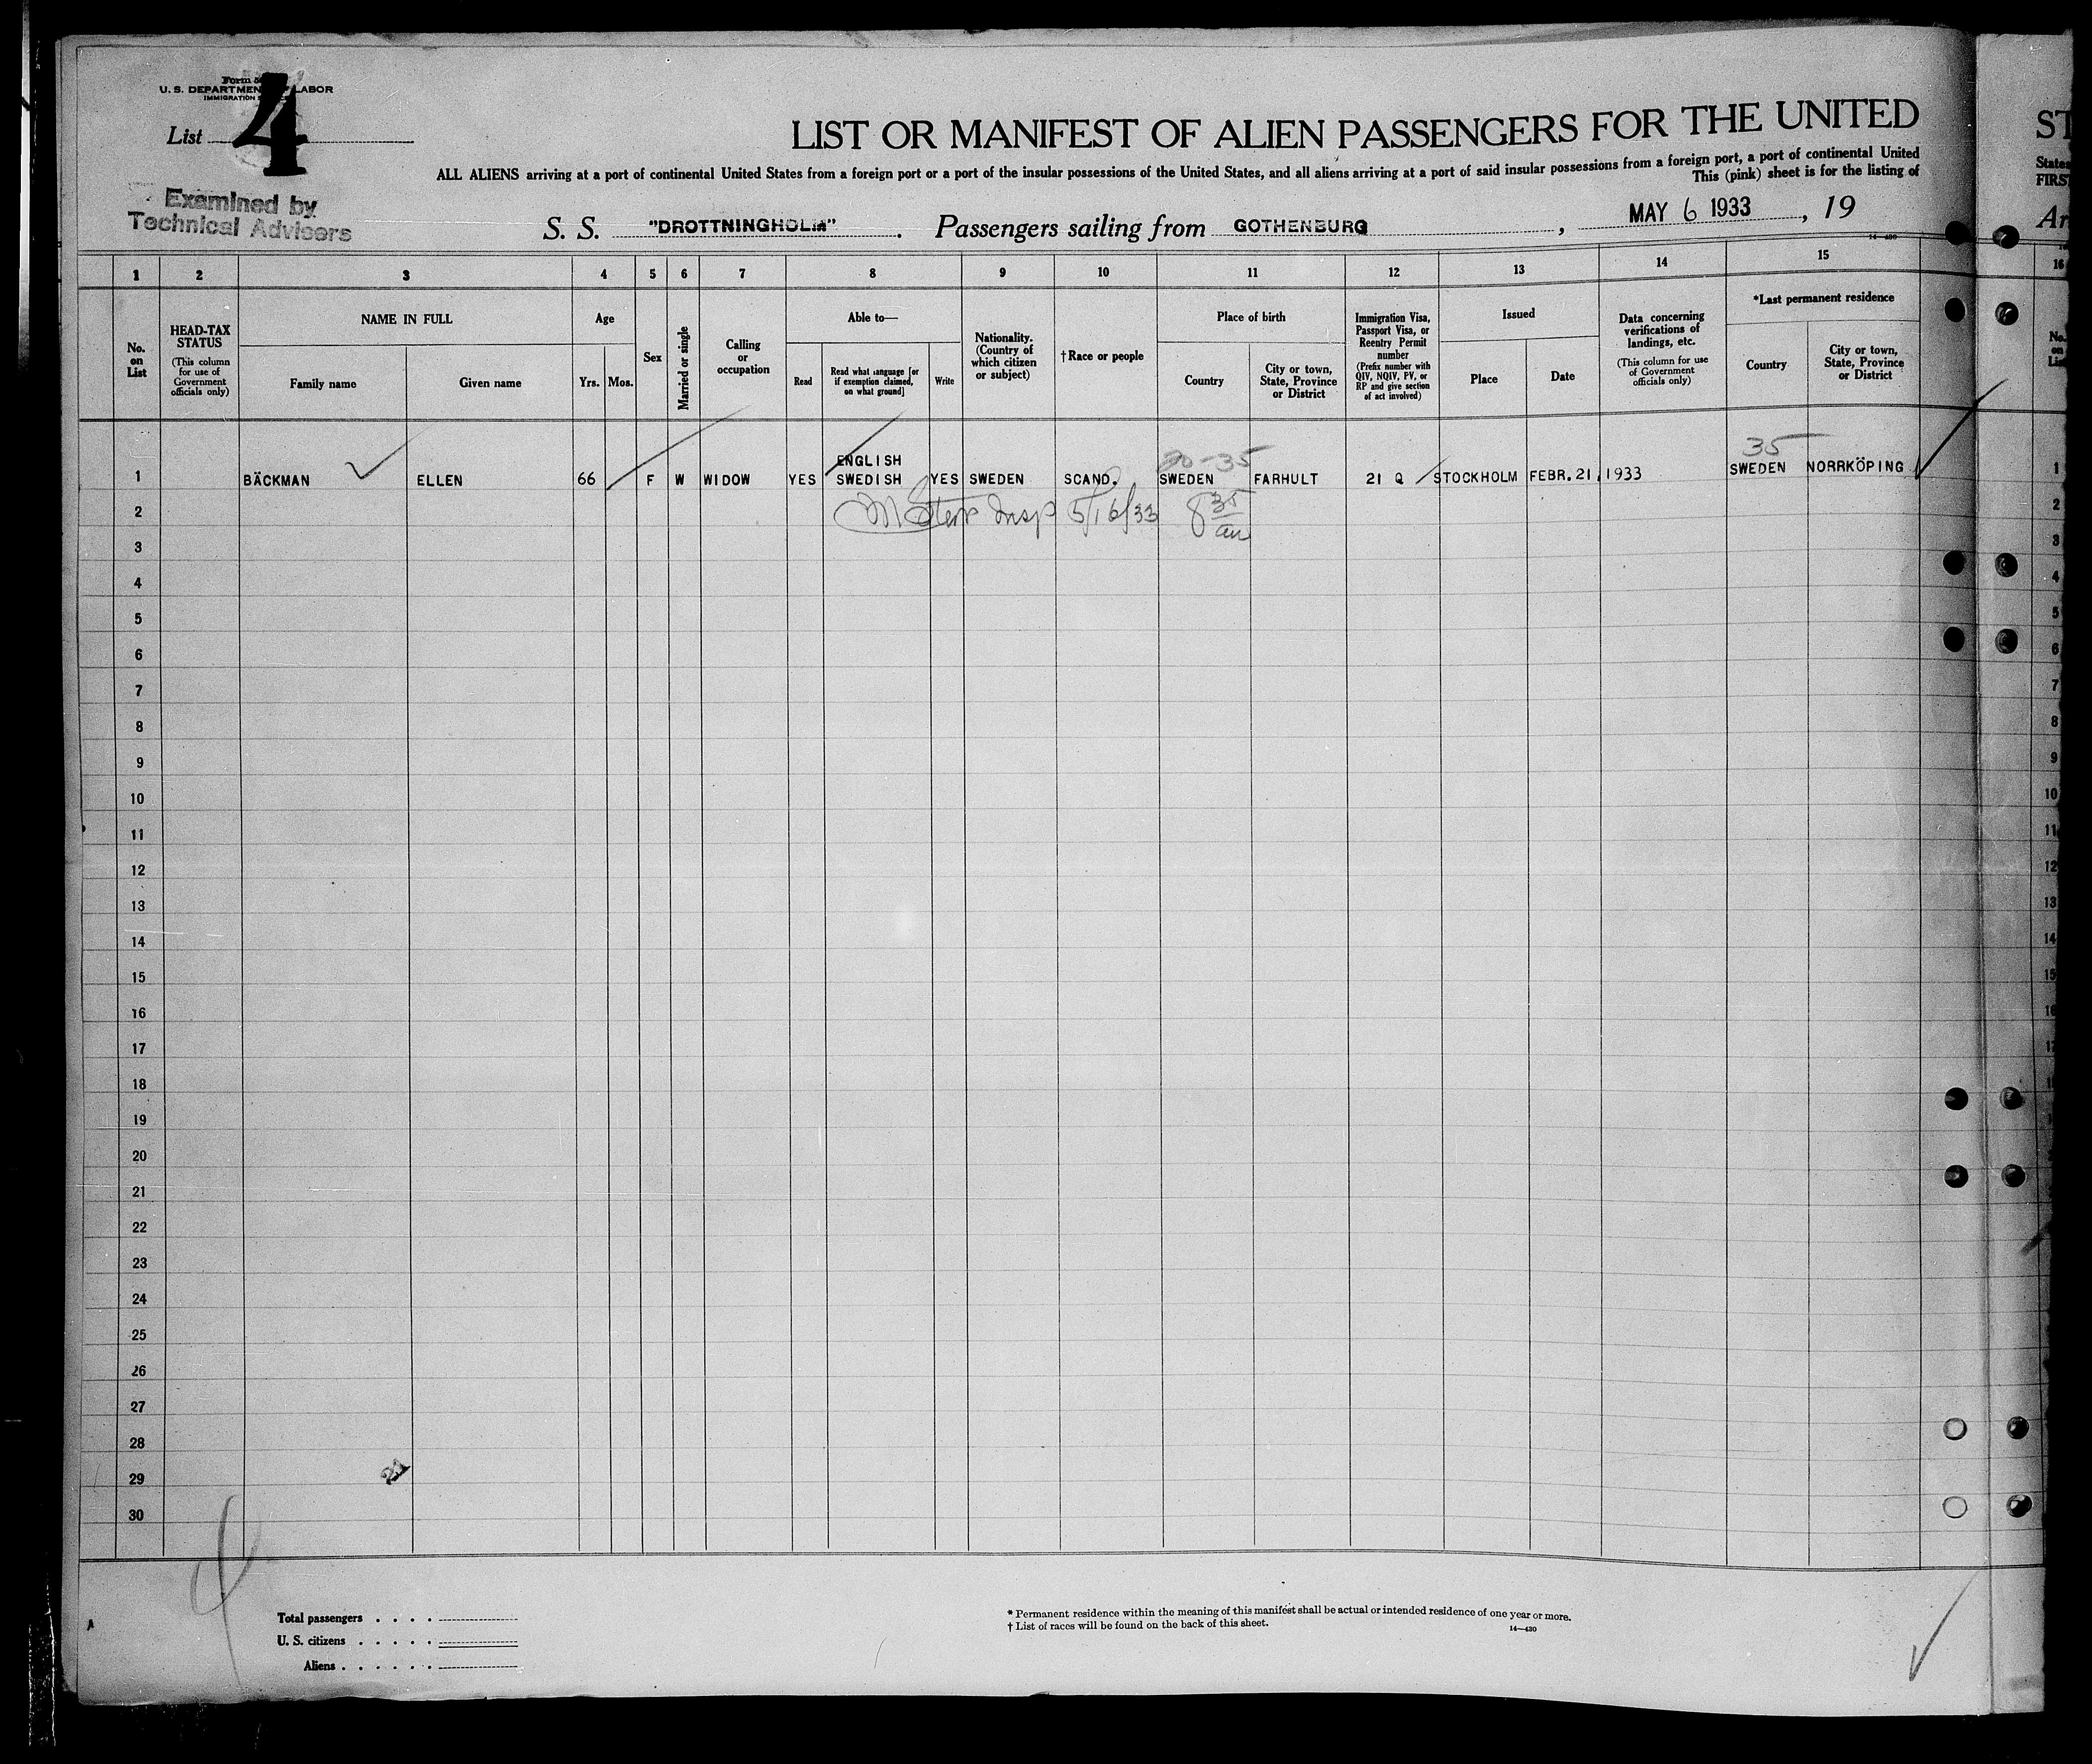 Form
U. S. DEPARTMENT LABOR
IMMIGRATION
List 4
LIST OR MANIFEST OF ALIEN PASSENGERS FOR THE UNITED
ALL ALIENS arriving at a port of continental United States from a foreign port or a port of the insular possessions of the United States, and all aliens arriving at a port of said insular possessions from a foreign port, a port of continental United
This (pink) sheet is for the listing of
Examined by
Technical Advisers
S. S. "DROTTNINGHOLM". Passengers sailing from GOTHENBURG, MAY 6 1933, 19
14—430
1 2 3 4 5 6 7 8 9 10 11 12 13 14 15
No. on List
HEAD-TAX STATUS
(This column for use of Government officials only)
NAME IN FULL
Family name
Given name
Age
Yrs. Mos.
Sex
Married or single
Calling or occupation
Able to—
Read
Read what language [or if exemption claimed, on what ground]
Write
Nationality. (Country of which citizen or subject)
†Race or people
Place of birth
Country
City or town, State, Province or District
Immigration Visa, Passport Visa, or Reentry Permit number
(Prefix number with QIV, NQIV, PV, or RP and give section of act involved)
Issued
Place
Date
Data concerning verifications of landings, etc.
(This column for use of Government officials only)
*Last permanent residence
Country
City or town, State, Province or District
20-35
35
ENGLISH
1 BÄCKMAN ELLEN 66 F W WIDOW YES SWEDISH YES SWEDEN SCAND. SWEDEN FARHULT 21 Q STOCKHOLM FEBR. 21, 1933 SWEDEN NORRKÖPING
2 Insp 5/16/33 8 35 am
3
4
5
6
7
8
9
10
11
12
13
14
15
16
17
18
19
20
21
22
23
24
25
26
27
28
29
30
Total passengers
U. S. citizens
Aliens
* Permanent residence within the meaning of this manifest shall be actual or intended residence of one year or more.
† List of races will be found on the back of this sheet.
14—430
ST
States
FIRST
Ar
16
No. on List
1
2
3
4
5
6
7
8
9
10
11
12
13
14
15
16